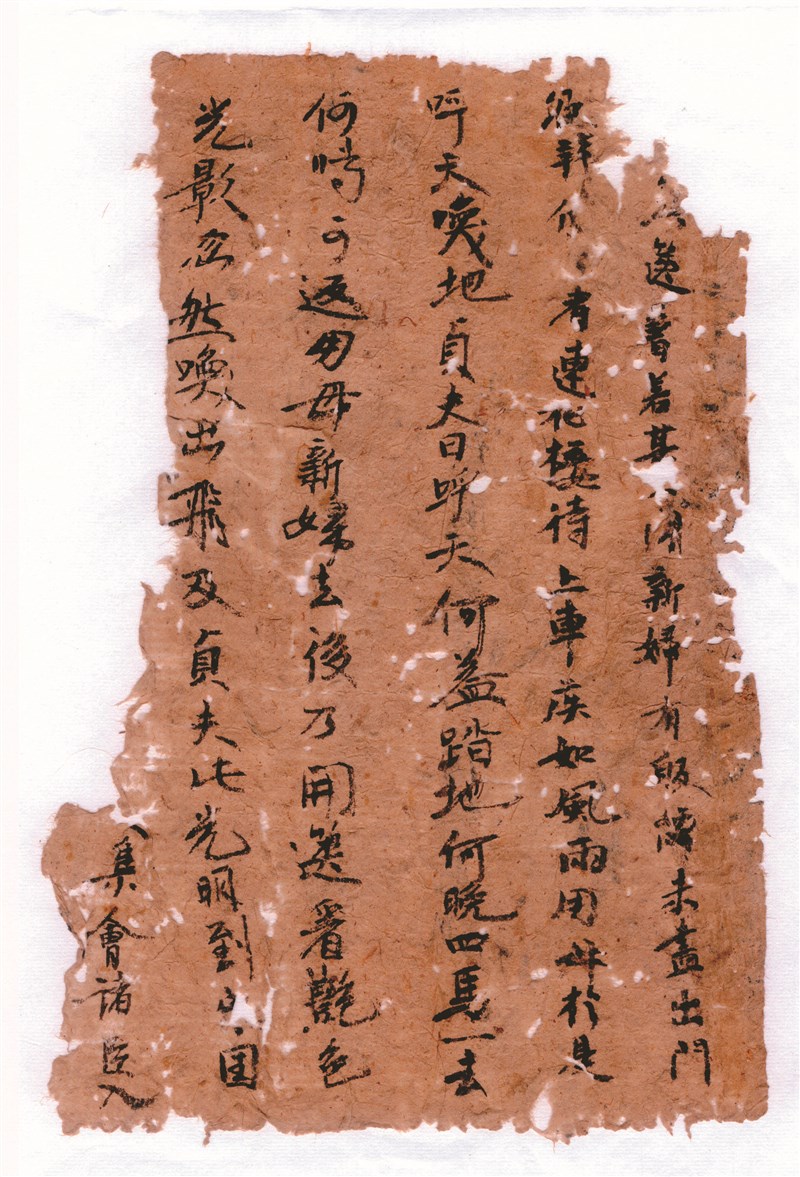 看若其 開新婦有 未盡出門
有連花接待上車疾如風雨用母於是
呼天喚地貞夫曰呼天何益踏地何晚四馬一去
何時可返用母新婦去後乃開 看艷色
光影忽然喚出飛及貞夫此光明到 國
集會諸臣入